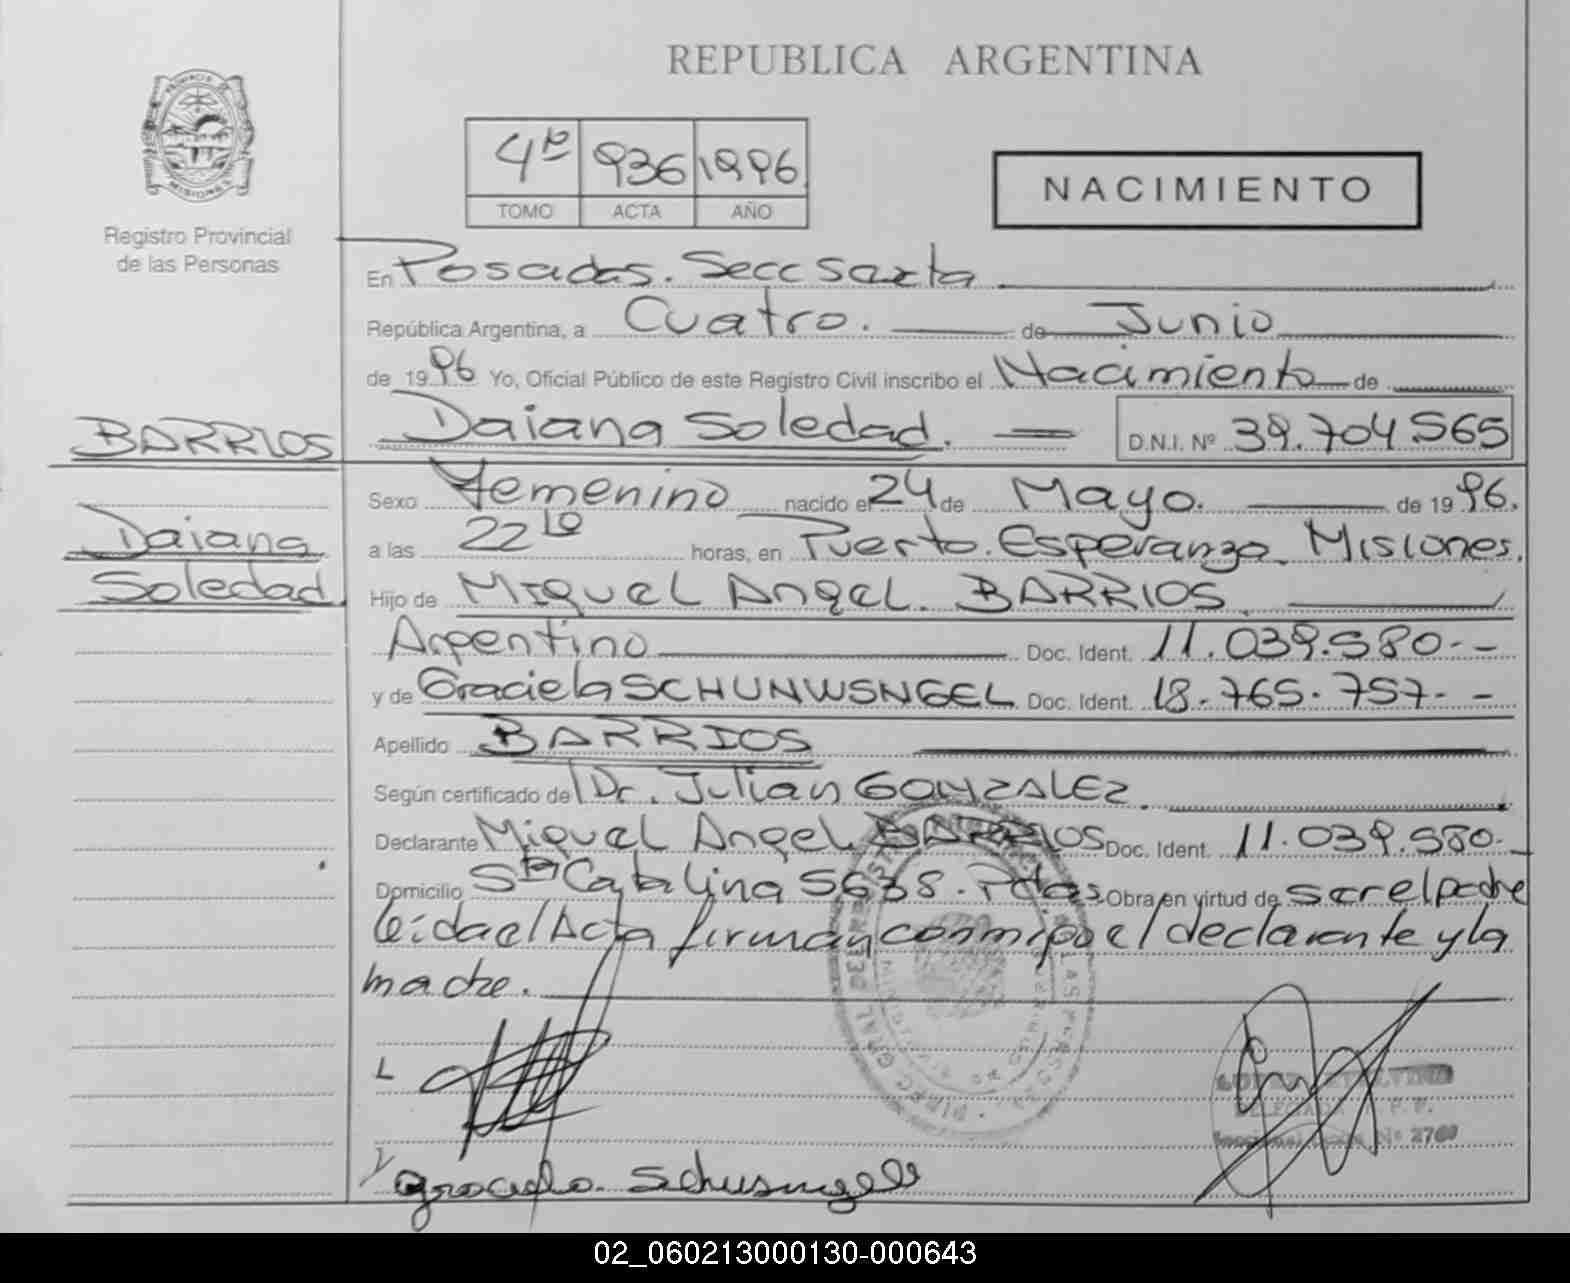 REPUBLICA ARGENTINA
PROVINCIA
MISIONES
Registro Provincial
de las Personas
4º 936 1996
TOMO ACTA AÑO
NACIMIENTO
En Posadas. Secc Sexta
República Argentina, a Cuatro. de Junio
de 1996 Yo, Oficial Público de este Registro Civil inscribo el Nacimiento de
BARRIOS Daiana Soledad. D.N.I. Nº 39.704.565
Sexo Femenino nacido el 24 de Mayo. de 1996.
Daiana
a las 22 horas, en Puerto Esperanza. Misiones.
Soledad
Hijo de Miguel Angel. BARRIOS.
Argentino Doc. Ident. 11.039.580.-
y de Graciela Doc. Ident. 18.765.757.-
Apellido BARRIOS
Según certificado del Dr. Julian GONZALEZ.
Declarante Miguel Angel BARRIOS Doc. Ident. 11.039.580.-
Domicilio Sta Catalina 5638. Pdas Obra en virtud de ser el padre
leida el Acta firman conmigo el declarante y la
madre.
02_060213000130-000643